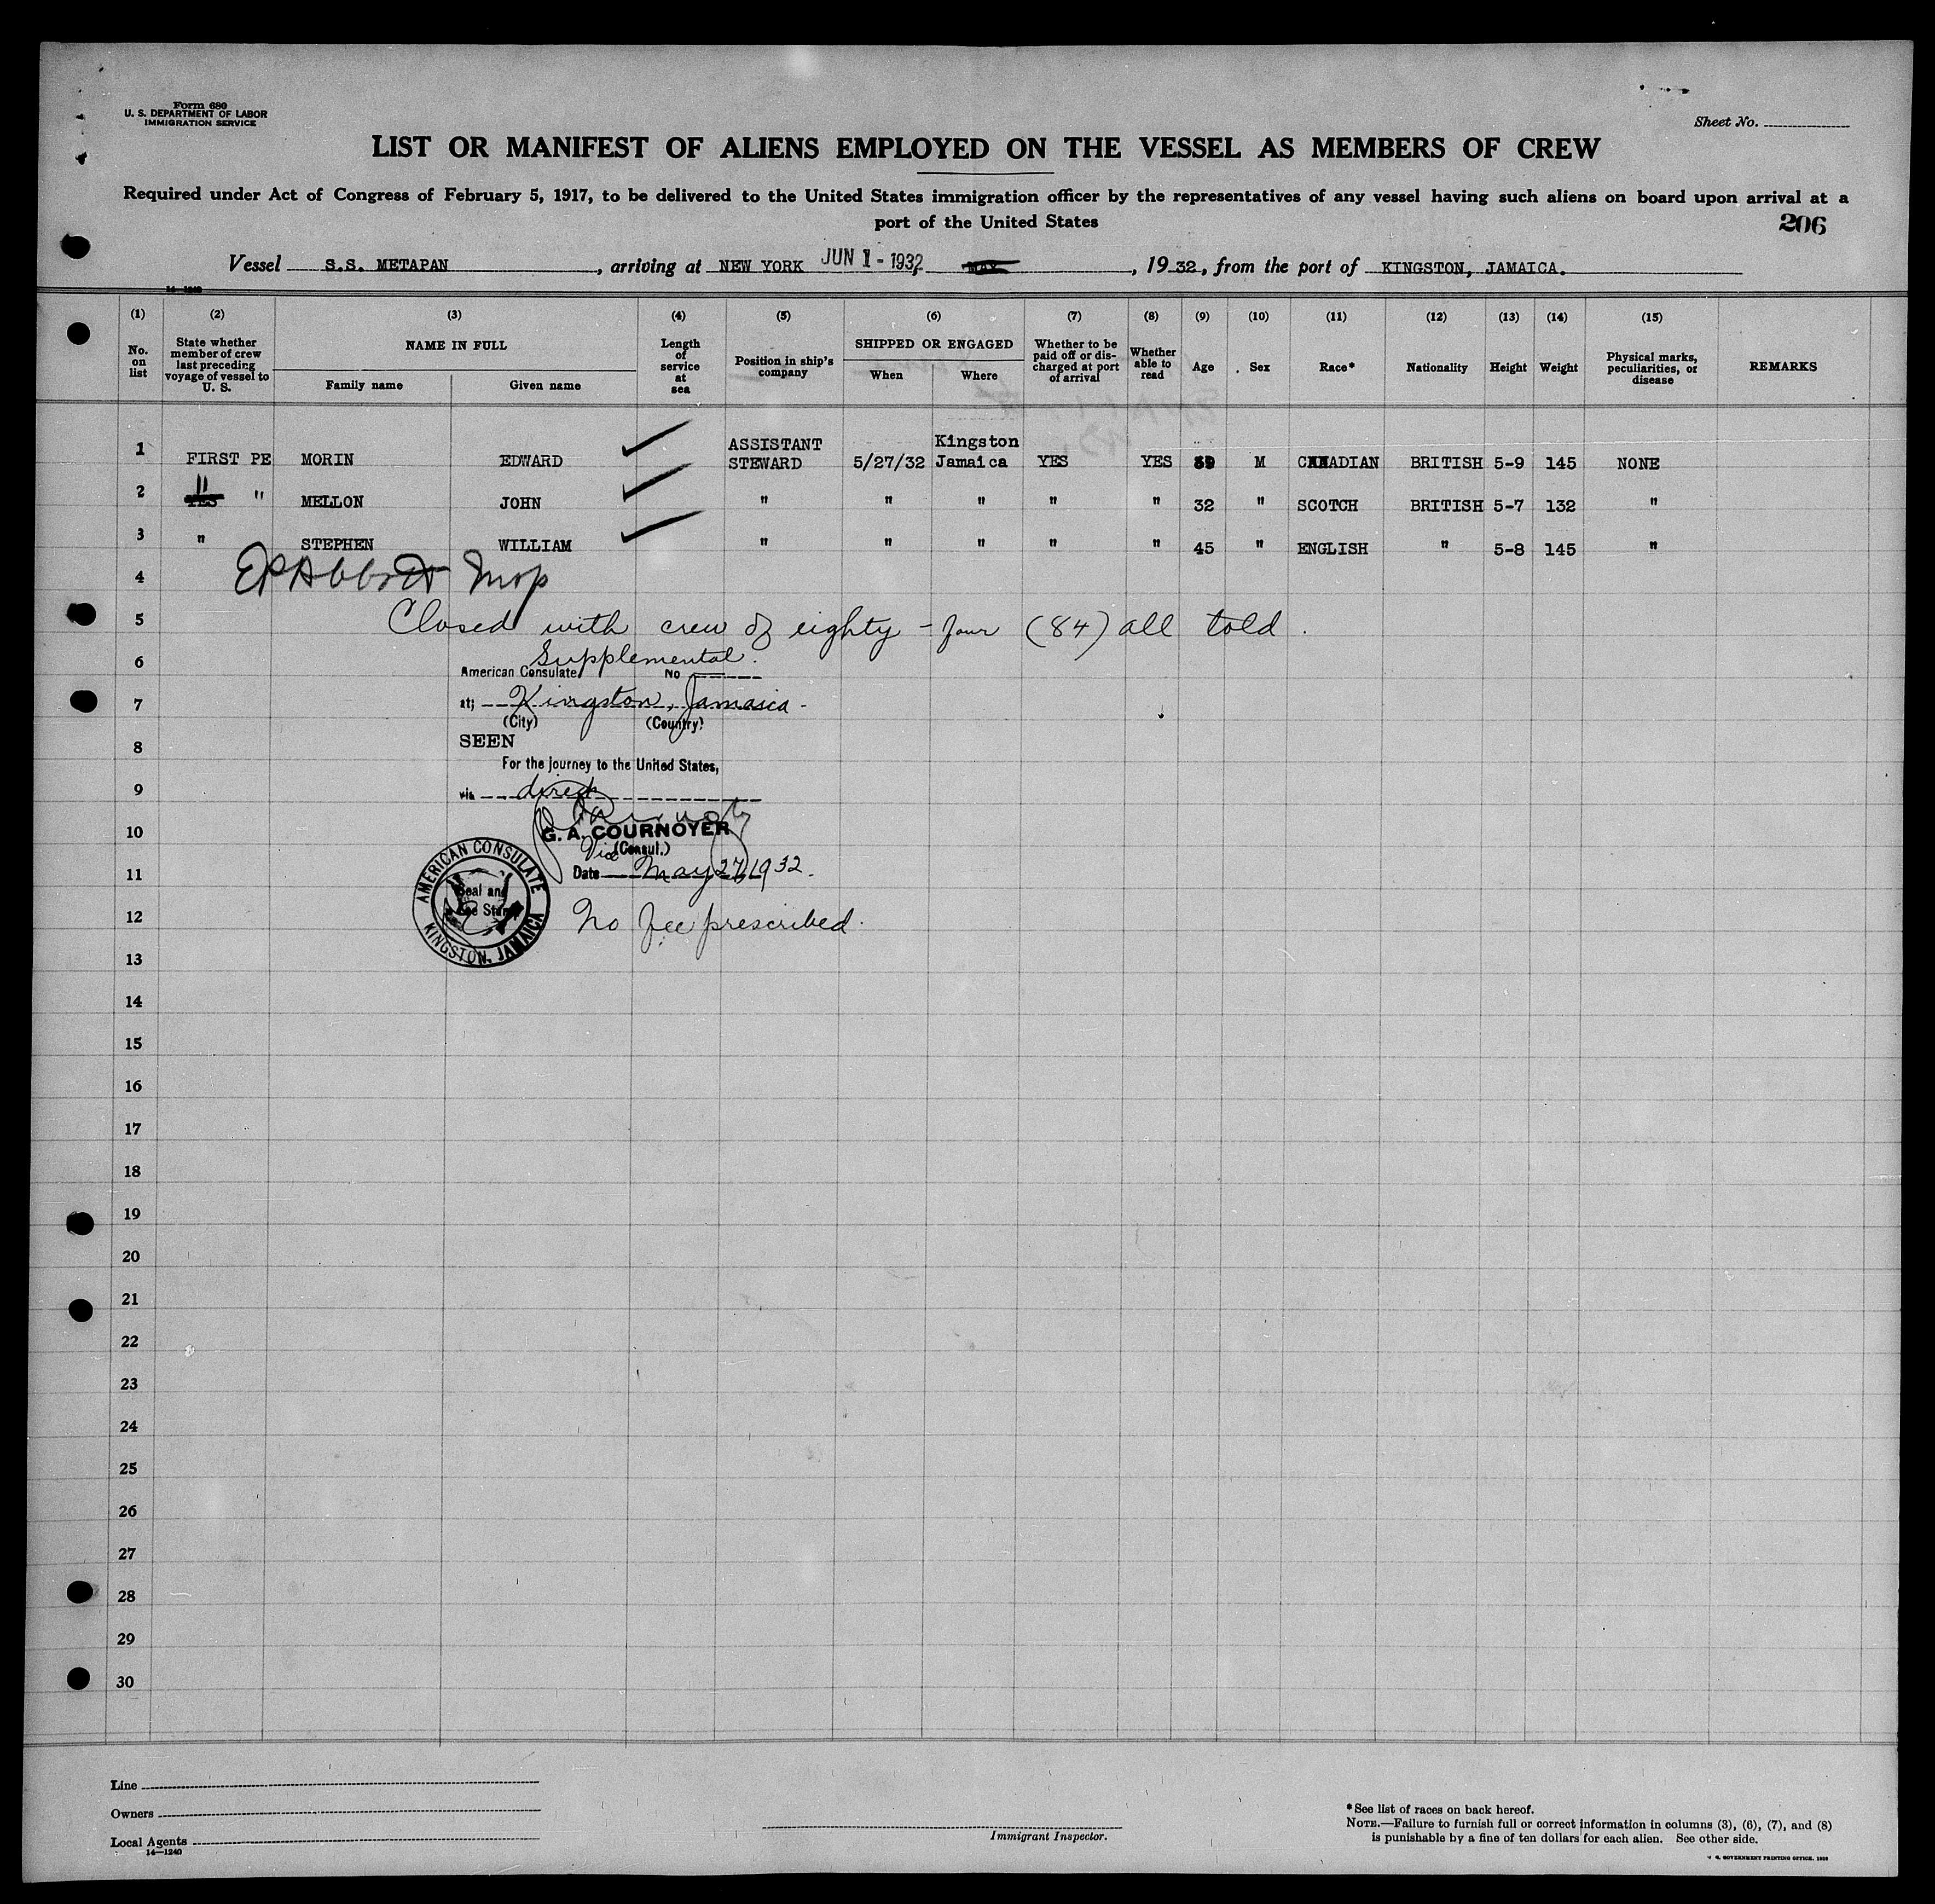 Form 680
U. S. DEPARTMENT OF LABOR
IMMIGRATION SERVICE
Sheet No.
LIST OR MANIFEST OF ALIENS EMPLOYED ON THE VESSEL AS MEMBERS OF CREW
Required under Act of Congress of February 5, 1917, to be delivered to the United States immigration officer by the representatives of any vessel having such aliens on board upon arrival at a
port of the United States
206
Vessel S.S. METAPAN, arriving at NEW YORK JUN 1 - 1932, MAY, 1932, from the port of KINGSTON, JAMAICA.
14—1240
(1) (2) (3) (4) (5) (6) (7) (8) (9) (10) (11) (12) (13) (14) (15)
No. on list
State whether member of crew last preceding voyage of vessel to U. S.
NAME IN FULL
Family name
Given name
Length of service at sea
Position in ship's company
SHIPPED OR ENGAGED
When
Where
Whether to be paid off or discharged at port of arrival
Whether able to read
Age
Sex
Race*
Nationality
Height
Weight
Physical marks, peculiarities, or disease
REMARKS
1 FIRST PE MORIN EDWARD ASSISTANT STEWARD 5/27/32 Kingston Jamaica YES YES M CANADIAN BRITISH 5-9 145 NONE
2 YES " " MELLON JOHN " " " " " 32 " SCOTCH BRITISH 5-7 132 "
3 " STEPHEN WILLIAM " " " " " 45 " ENGLISH " 5-8 145 "
4 EP Abbott
5 Closed with crew of eighty - four (84) all told.
6 Supplemental.
American Consulate No
7 at; Kingston, Jamaica -
(City) (Country)
8 SEEN
For the journey to the United States,
9 via direct
10 G. A. COURNOYER
Vice (Consul.)
11 Date May 27, 1932.
AMERICAN CONSULATE
KINGSTON, JAMAICA
Seal and
Fee Stamp
12 No fee prescribed.
13
14
15
16
17
18
19
20
21
22
23
24
25
26
27
28
29
30
Line
Owners
Local Agents
14—1240
Immigrant Inspector.
*See list of races on back hereof.
NOTE.—Failure to furnish full or correct information in columns (3), (6), (7), and (8)
is punishable by a fine of ten dollars for each alien. See other side.
U. S. GOVERNMENT PRINTING OFFICE.